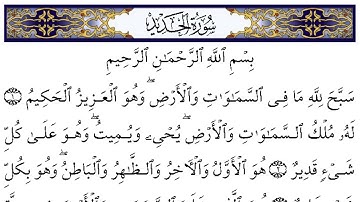 سُورَةُ الْحَدِيدِ
بِسْمِ اللَّهِ الرَّحْمَـٰنِ الرَّحِيمِ
سَبَّحَ لِلَّهِ مَا فِى السَّمَـٰوَٰتِ وَالْأَرْضِ ۖ وَهُوَ الْعَزِيزُ الْحَكِيمُ ۝١
لَهُۥ مُلْكُ السَّمَـٰوَٰتِ وَالْأَرْضِ ۖ يُحْىِۦ وَيُمِيتُ ۖ وَهُوَ عَلَىٰ كُلِّ
شَىْءٍ قَدِيرٌ ۝٢ هُوَ الْأَوَّلُ وَالْـَٔاخِرُ وَالظَّـٰهِرُ وَالْبَاطِنُ ۖ وَهُوَ بِكُلِّ